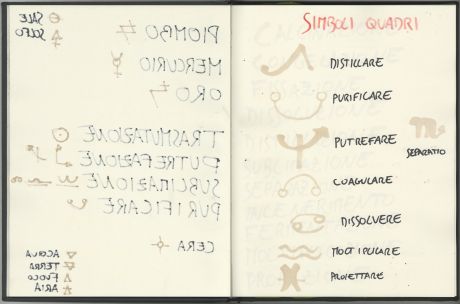 SALE
SOLFO
PIOMBO
MERCURIO
ORO
TRASMUTAZIONE
PUTREFAZIONE
SUBLIMAZIONE
PURIFICARE
CERA
ACQUA
TERRA
FUOCO
ARIA
SIMBOLI QUADRI
DISTILLARE
PURIFICARE
PUTREFARE
SEPARATIO
COAGULARE
DISSOLVERE
MOLTIPLICARE
PROIETTARE